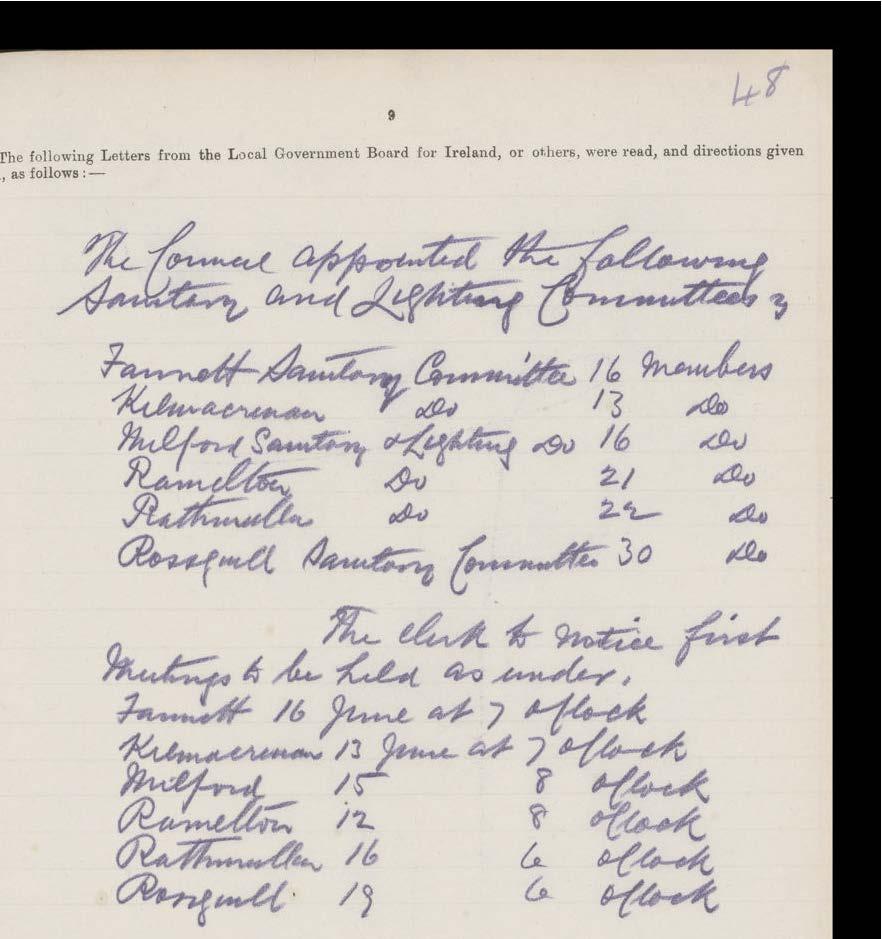 48
9
The following Letters from the Local Government Board for Ireland, or others, were read, and directions given
, as follows:—
The Council appointed the following
Sanitary and Lighting Committees
Fannett Sanitary Committee 16 Members
Kilmacrenan Do 13 Do
Milford Sanitary & Lighting Do 16 Do
Ramelton Do 21 Do
Rathmullen Do 22 Do
Rossguill Sanitary Committee 30 Do
The clerk to notice first
Meetings to be held as under.
Fannett 16 June at 7 o'clock
Kilmacrenan 13 June at 7 o'clock
Milford 15 8 o'clock
Ramelton 12 8 o'clock
Rathmullen 16 6 o'clock
Rosguill 19 6 o'clock